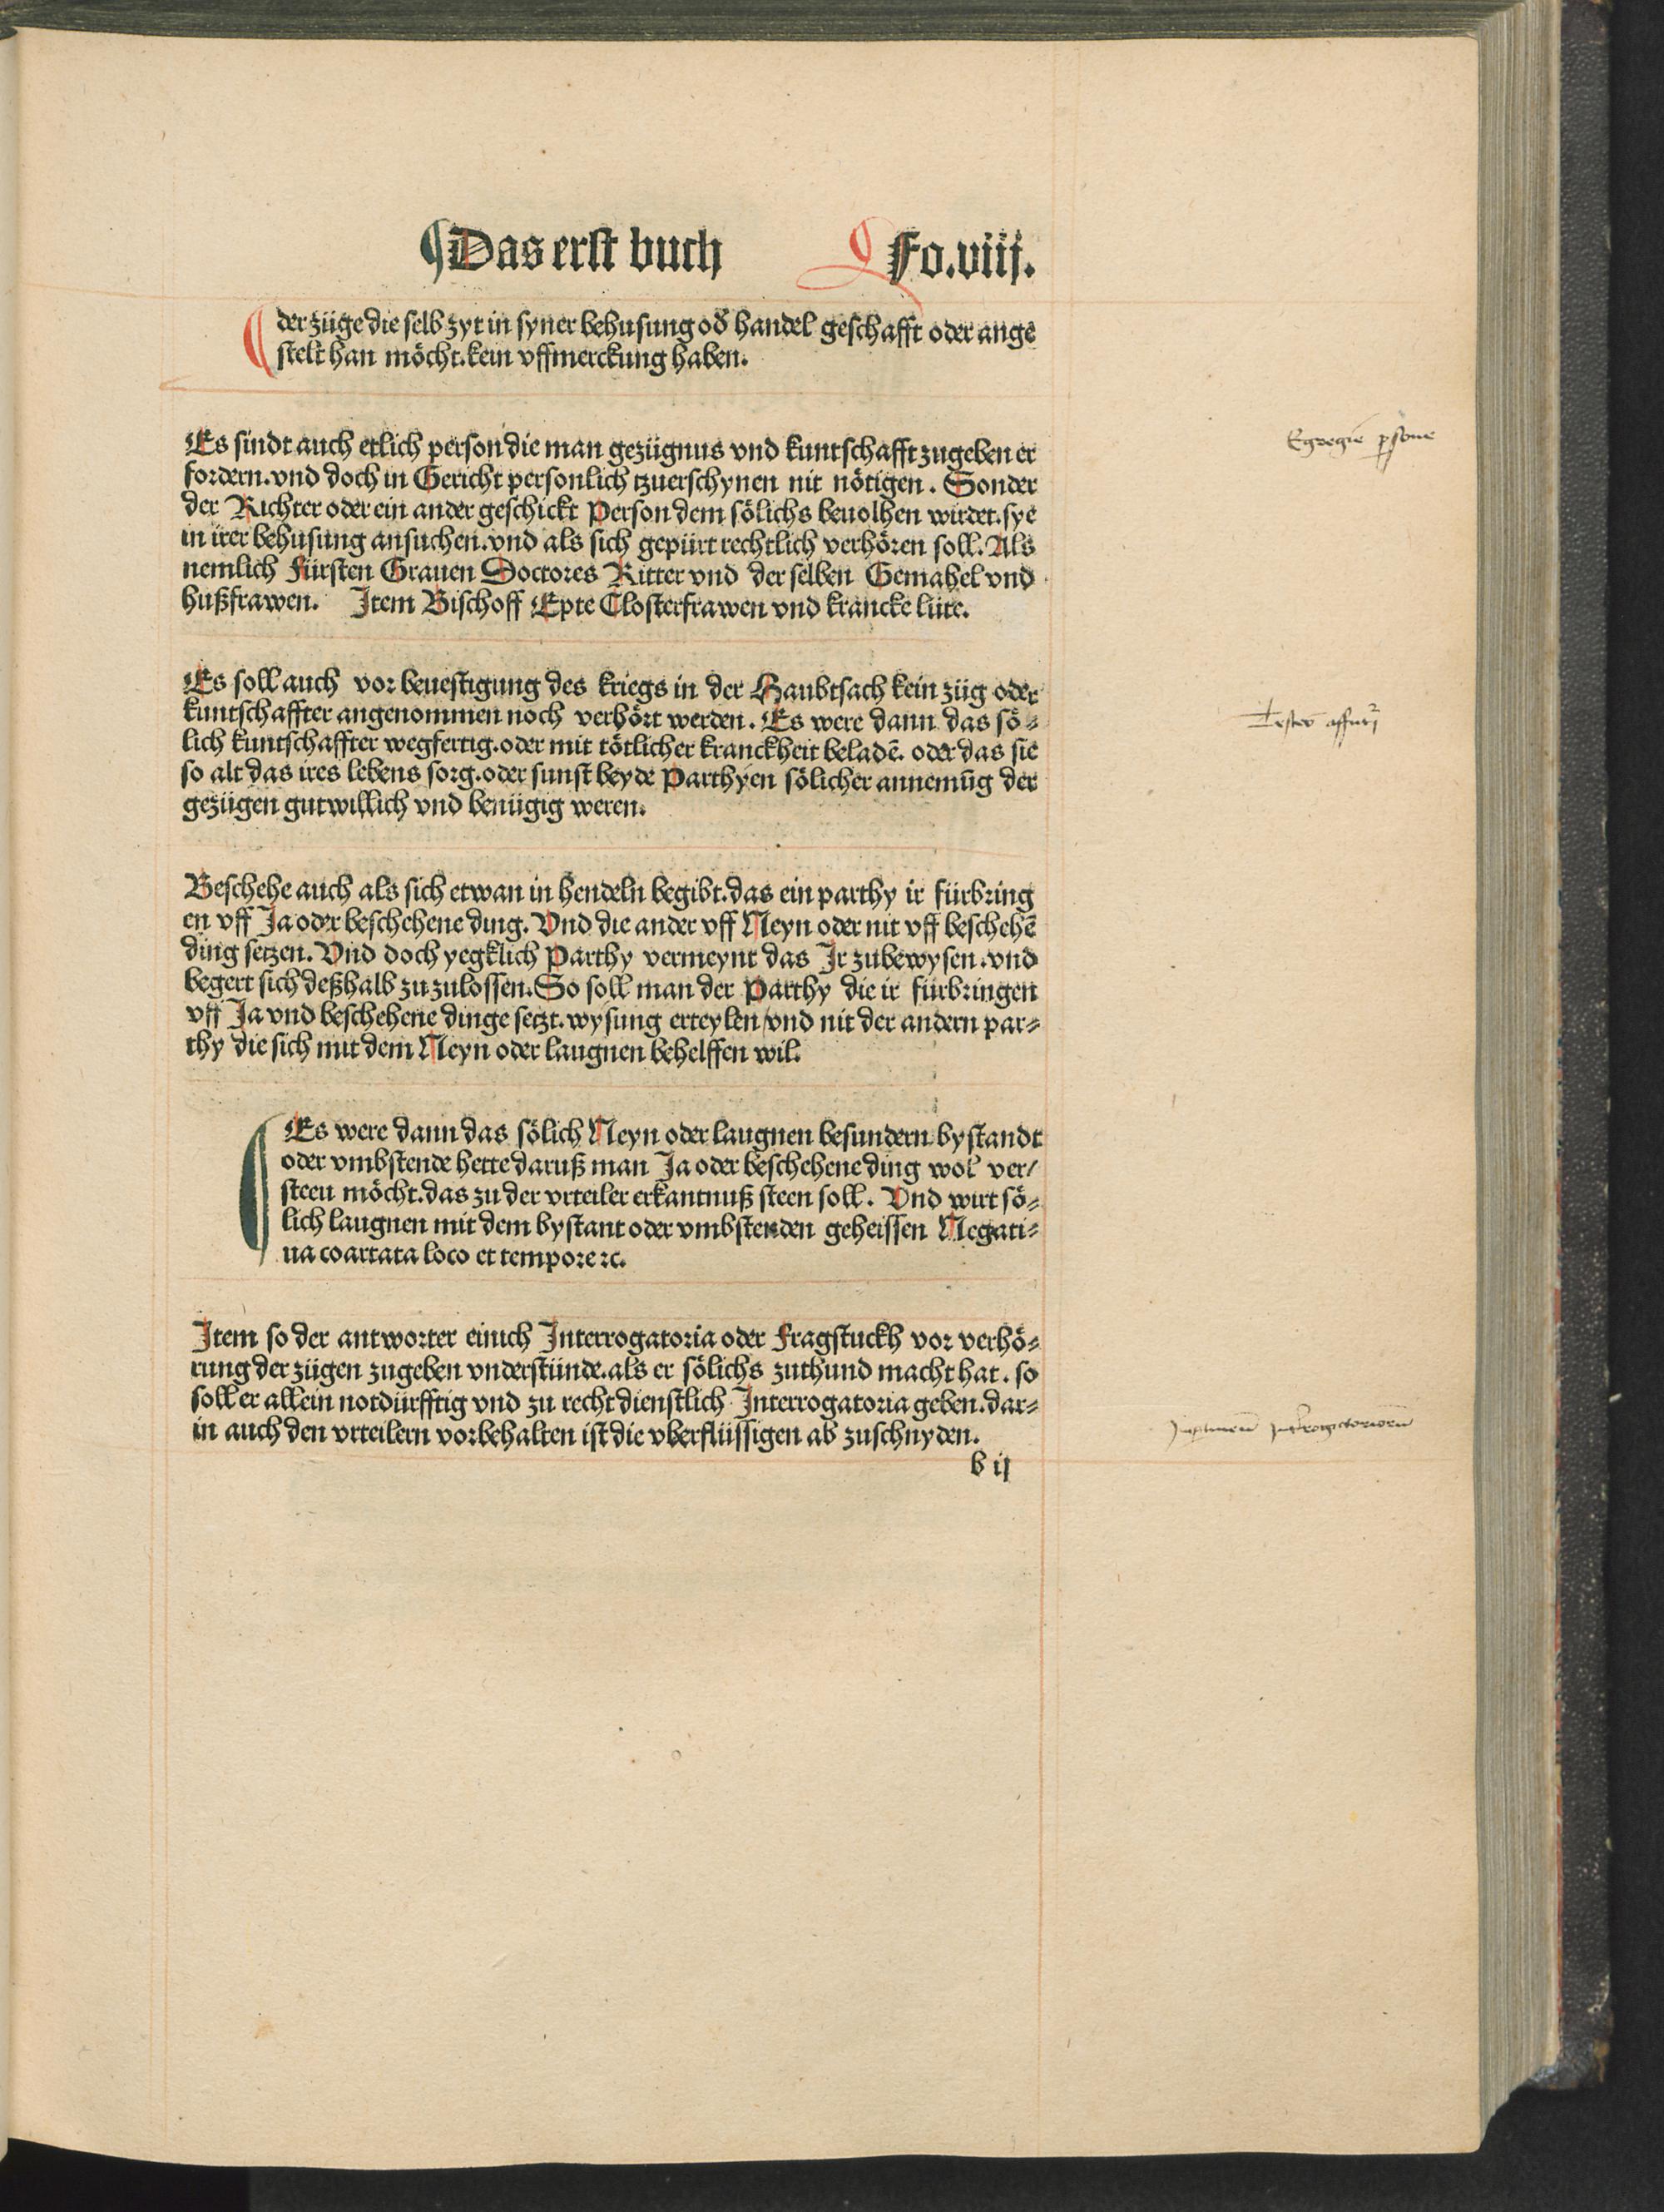 ¶Das erst buch Fo.viij.
der züge die selb zyt in syner behusung od̕ handel geschafft oder ange
stelt han möcht.kein vffmerckung haben.
Es sindt auch etlich person die man gezügnus vnd kuntschafft zugeben er
fordern.vnd doch in Gericht personlich tzuerschynen nit nötigen. Sonder
der Richter oder ein ander geschickt Person dem sölichs beuolhen wirdet.sye
in irer behusung ansuchen.vnd als sich gepürt rechtlich verhören soll. Als
nemlich Fürsten Grauen Doctores Ritter vnd der selben Gemahel vnd
hußfrawen. Item Bischoff Epte Closterfrawen vnd krancke lüte.
Egregie p̱sone
Es soll auch vor beuestigung des kriegs in der Haubtsach kein züg oder
kuntschaffter angenommen noch verhört werden. Es were dann das sö⸗
lich kuntschaffter wegfertig.oder mit tötlicher kranckheit beladē. oder das sie
so alt das ires lebens sorg.oder sunst beyde Parthyen sölicher annemūg der
gezügen gutwillich vnd benügig weren.
Beschehe auch als sich etwan in hendeln begibt.das ein parthy ir fürbring
en vff Ja oder beschehene ding. Vnd die ander vff Neyn oder nit vff beschehē
ding setzen. Vnd doch yegklich Parthy vermeynt das Ir zubewysen.vnd
begert sich deßhalb zu zulossen. So soll man der Parthy die ir fürbringen
vff Ja vnd beschehene dinge setzt.wysung erteylen/vnd nit der andern par⸗
thy die sich mit dem Neyn oder laugnen behelffen wil.
Es were dann das sölich Neyn oder laugnen besundern bystandt
oder vmbstende hette daruß man Ja oder beschehene ding wol ver/
steen möcht.das zu der vrteiler erkantnuß steen soll. Vnd wirt sö⸗
lich laugnen mit dem bystant oder vmbstenden geheissen Negati⸗
ua coartata loco et tempore ⁊c.
Item so der antworter einich Interrogatoria oder Fragstuckh vor verhö⸗
rung der zügen zugeben vnderstünde.als er sölichs zuthund macht hat. so
soll er allein notdürfftig vnd zu recht dienstlich Interrogatoria geben.dar⸗
in auch den vrteilern vorbehalten ist die vberflüssigen ab zuschnyden.
b ij